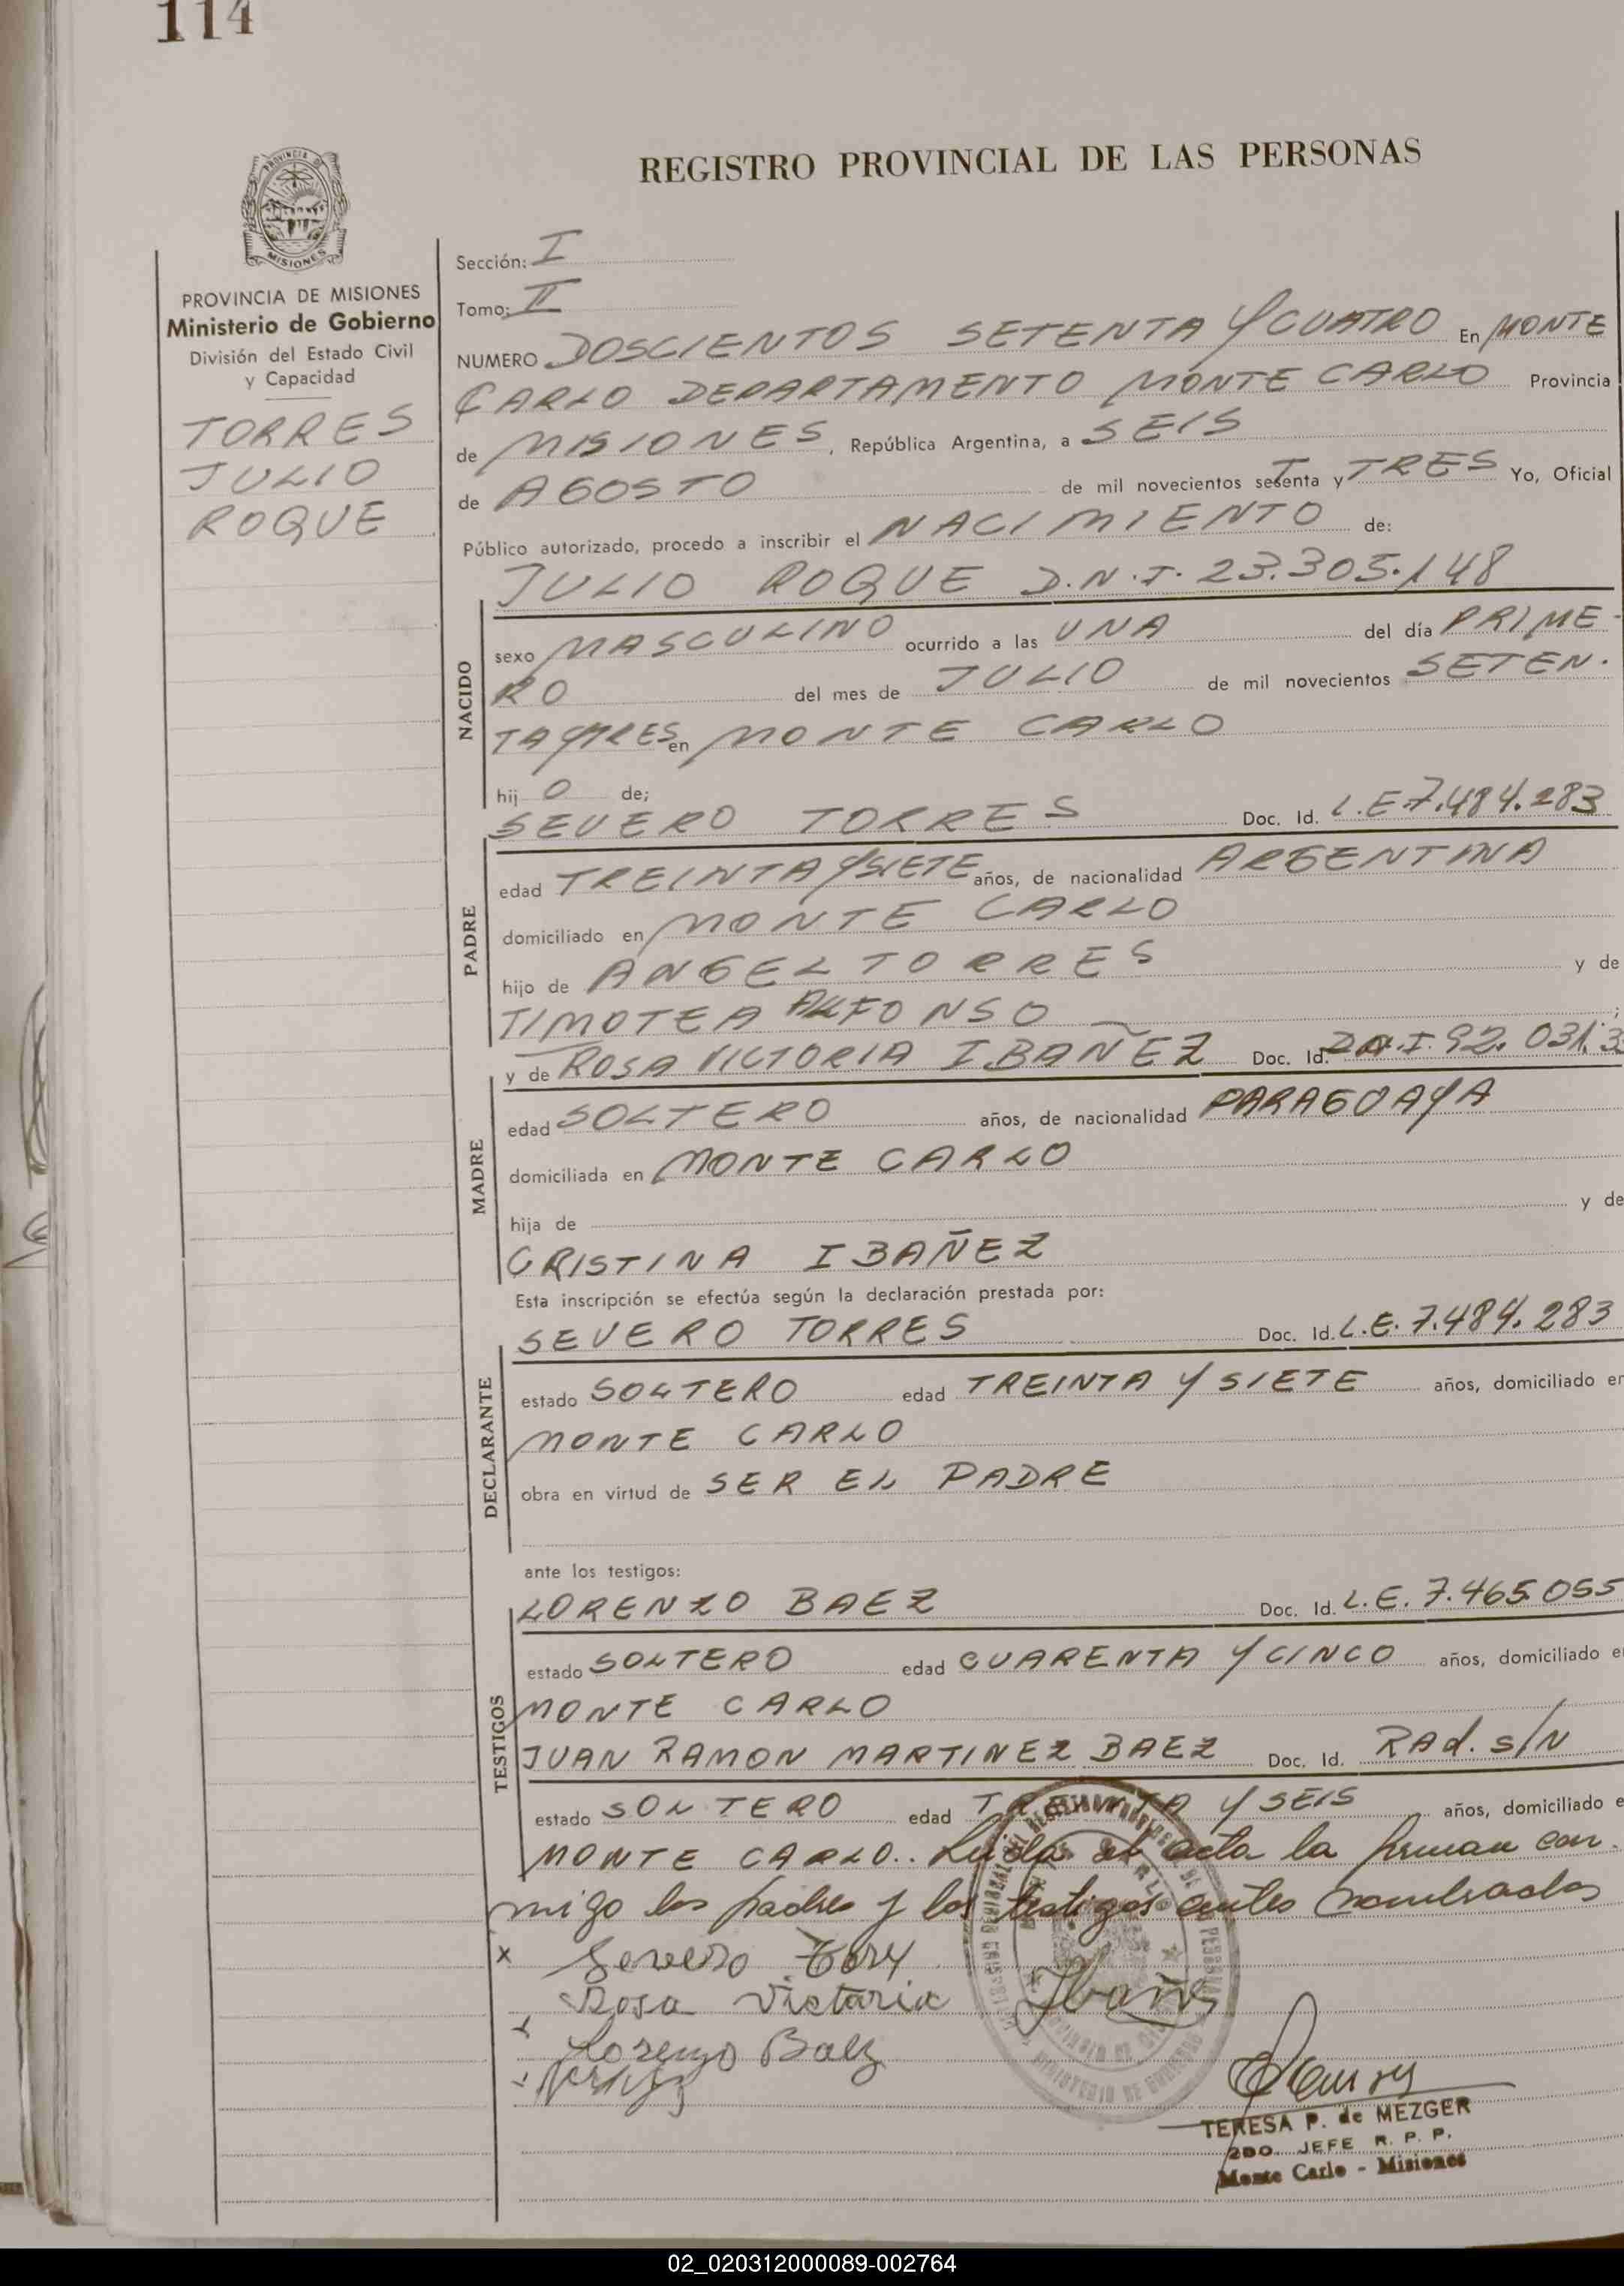 114
REGISTRO PROVINCIAL DE LAS PERSONAS
PROVINCIA DE MISIONES
PROVINCIA DE MISIONES
Ministerio de Gobierno
División del Estado Civil
y Capacidad
TORRES
JULIO
ROQUE
Sección: I
Tomo: II
NUMERO DOSCIENTOS SETENTA Y CUATRO En MONTE
CARLO DEPARTAMENTO MONTE CARLO Provincia
de MISIONES, República Argentina, a SEIS
de AGOSTO de mil novecientos setenta y TRES Yo, Oficial
Público autorizado, procedo a inscribir el NACIMIENTO de:
JULIO ROQUE D.N.I. 23.305.148
NACIDO
sexo MASCULINO ocurrido a las UNA del día PRIME-
RO del mes de JULIO de mil novecientos SETEN.
TA Y TRES en MONTE CARLO
hij O de;
SEVERO TORRES Doc. Id. L.E 7.484.283
PADRE
edad TREINTA Y SIETE años, de nacionalidad ARGENTINA
domiciliado en MONTE CARLO
hijo de ANGEL TORRES y de
TIMOTEA ALFONSO ;
y de ROSA VICTORIA IBAÑEZ Doc. Id. D.N.I. 92.031.3
MADRE
edad SOLTERO años, de nacionalidad PARAGUAYA
domiciliada en MONTE CARLO
hija de y de
CRISTINA IBAÑEZ
Esta inscripción se efectúa según la declaración prestada por:
SEVERO TORRES Doc. Id. L.E. 7.484.283
DECLARANTE
estado SOLTERO edad TREINTA Y SIETE años, domiciliado en
MONTE CARLO
obra en virtud de SER EL PADRE
ante los testigos:
LORENZO BAEZ Doc. Id. L.E. 7.465.055
TESTIGOS
estado SOLTERO edad CUARENTA Y CINCO años, domiciliado e
MONTE CARLO
JUAN RAMON MARTINEZ BAEZ Doc. Id. RAd. s/N
estado SOLTERO edad TREINTA Y SEIS años, domiciliado e
MONTE CARLO.. Leída el acta la firman con-
migo los padres y los testigos antes nombrados
x Severo Torr
Rosa Victoria Ibañ
Lorenzo Baez
TERESA P. de MEZGER
2DO. JEFE R. P. P.
Monte Carlo - Misiones
02_020312000089-002764